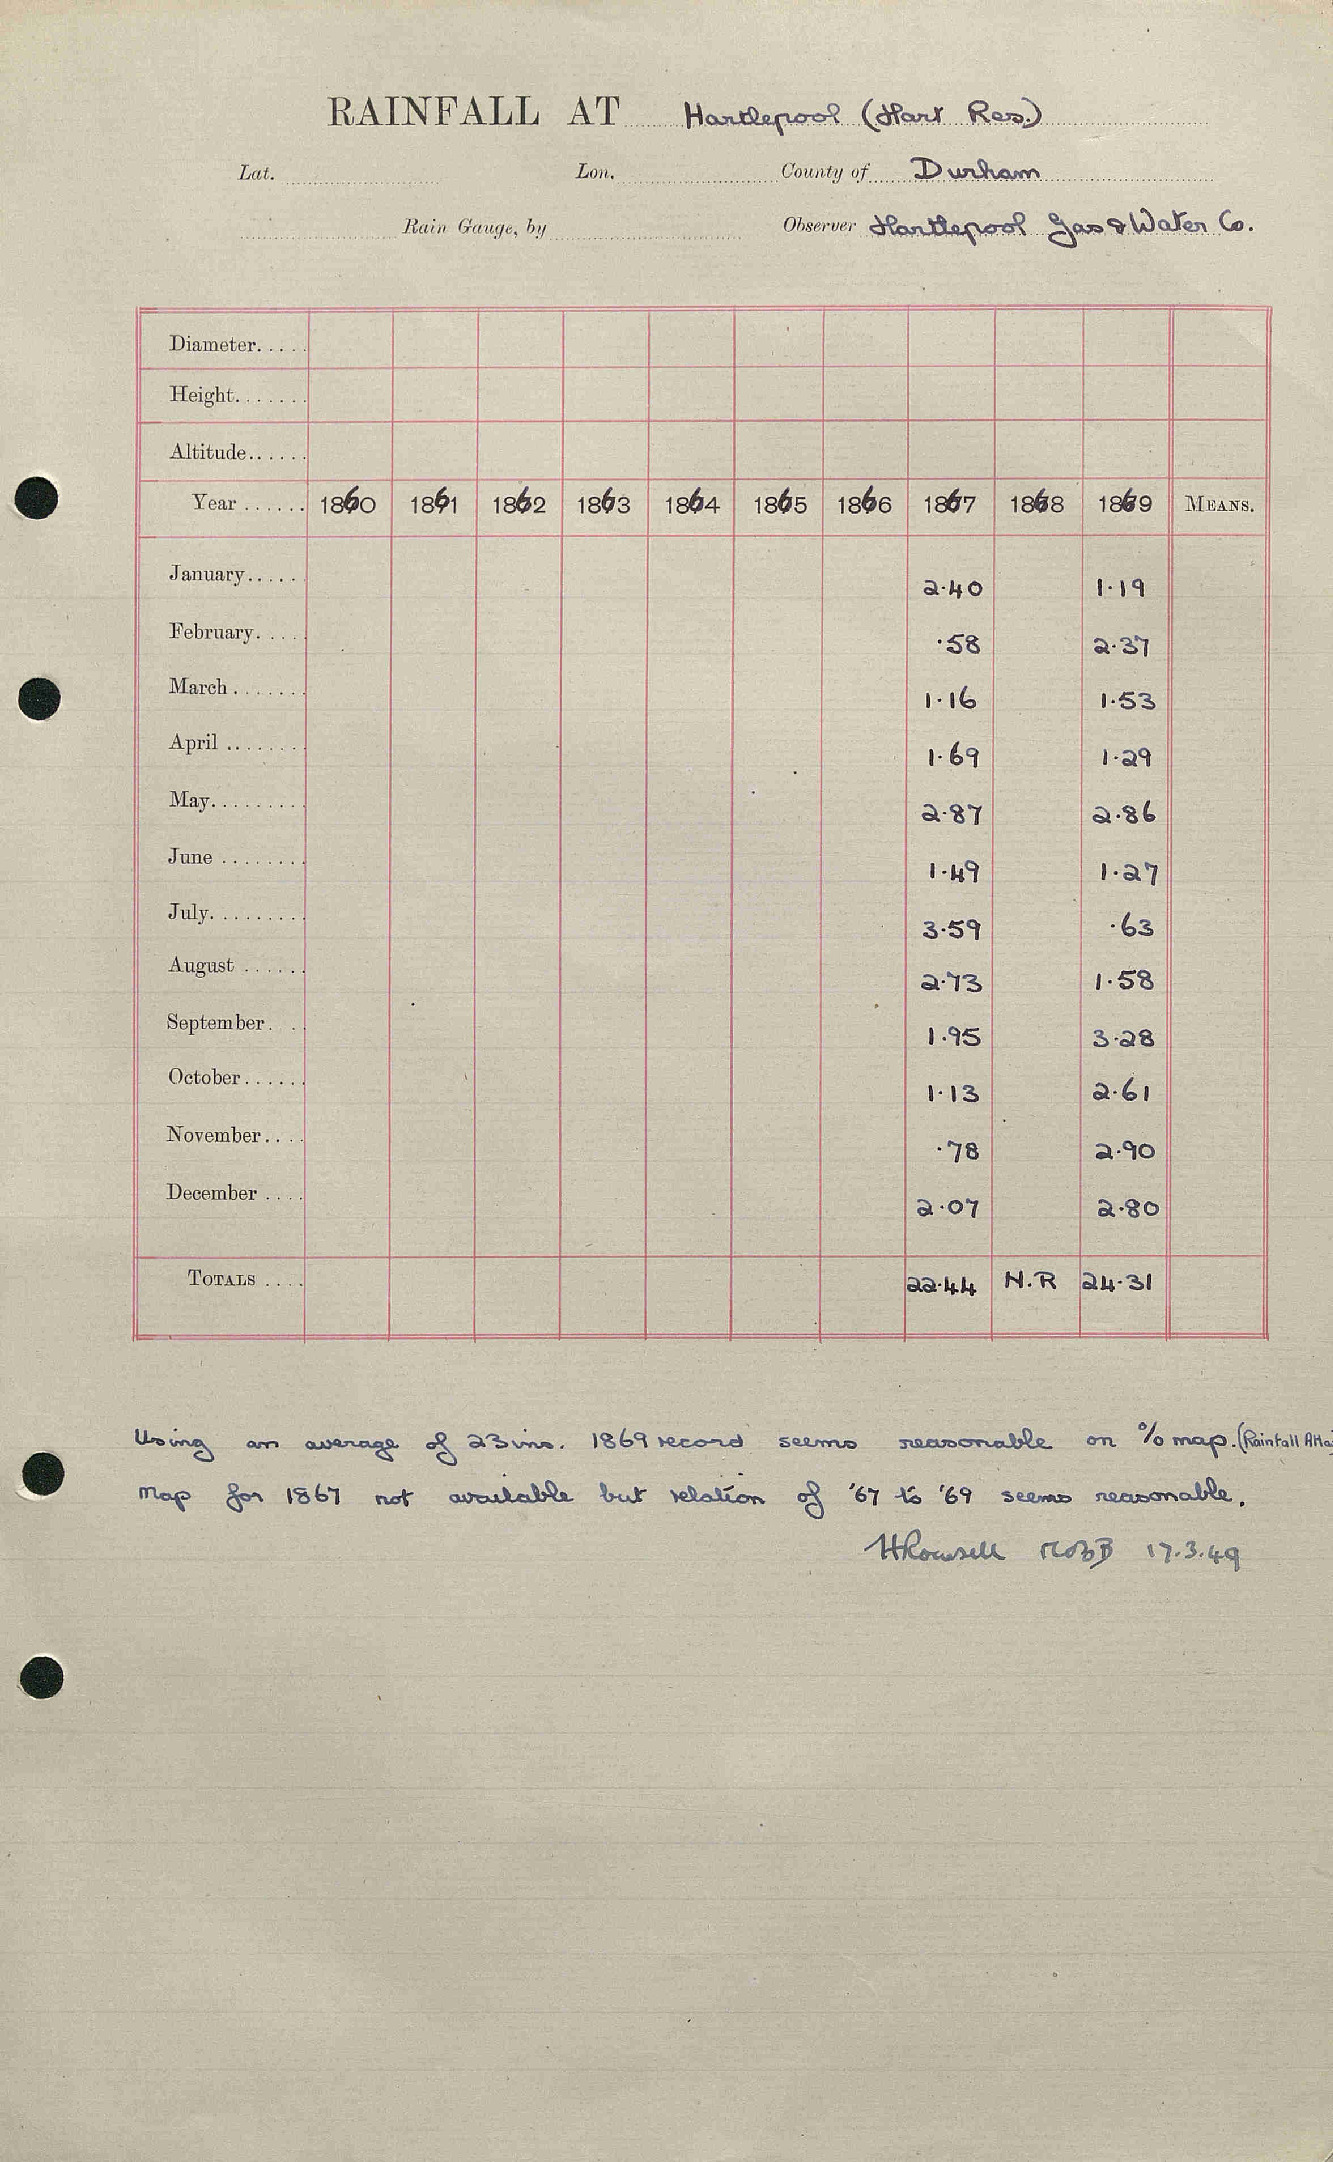 RAINFALL AT Hartlepool (Hart Res.)
Lat. Lon. County of Durham
Rain Gauge, by Observer Hartlepool Gas & Water Co.
Diameter.....
Height.......
Altitude......
Year ...... 1860 1861 1862 1863 1864 1865 1866 1867 1868 1869 MEANS.
January..... 2.40 1.19
February.... .58 2.37
March ....... 1.16 1.53
April ........ 1.69 1.29
May......... 2.87 2.86
June ........ 1.49 1.27
July......... 3.59 .63
August ...... 2.73 1.58
September... 1.95 3.28
October...... 1.13 2.61
November.... .78 2.90
December .... 2.07 2.80
TOTALS .... 22.44 N.R 24.31
Using an average of 23 ins. 1869 record seems reasonable on % map. (Rainfall Atlas
Map for 1867 not available but relation of '67 to '69 seems reasonable.
17.3.49